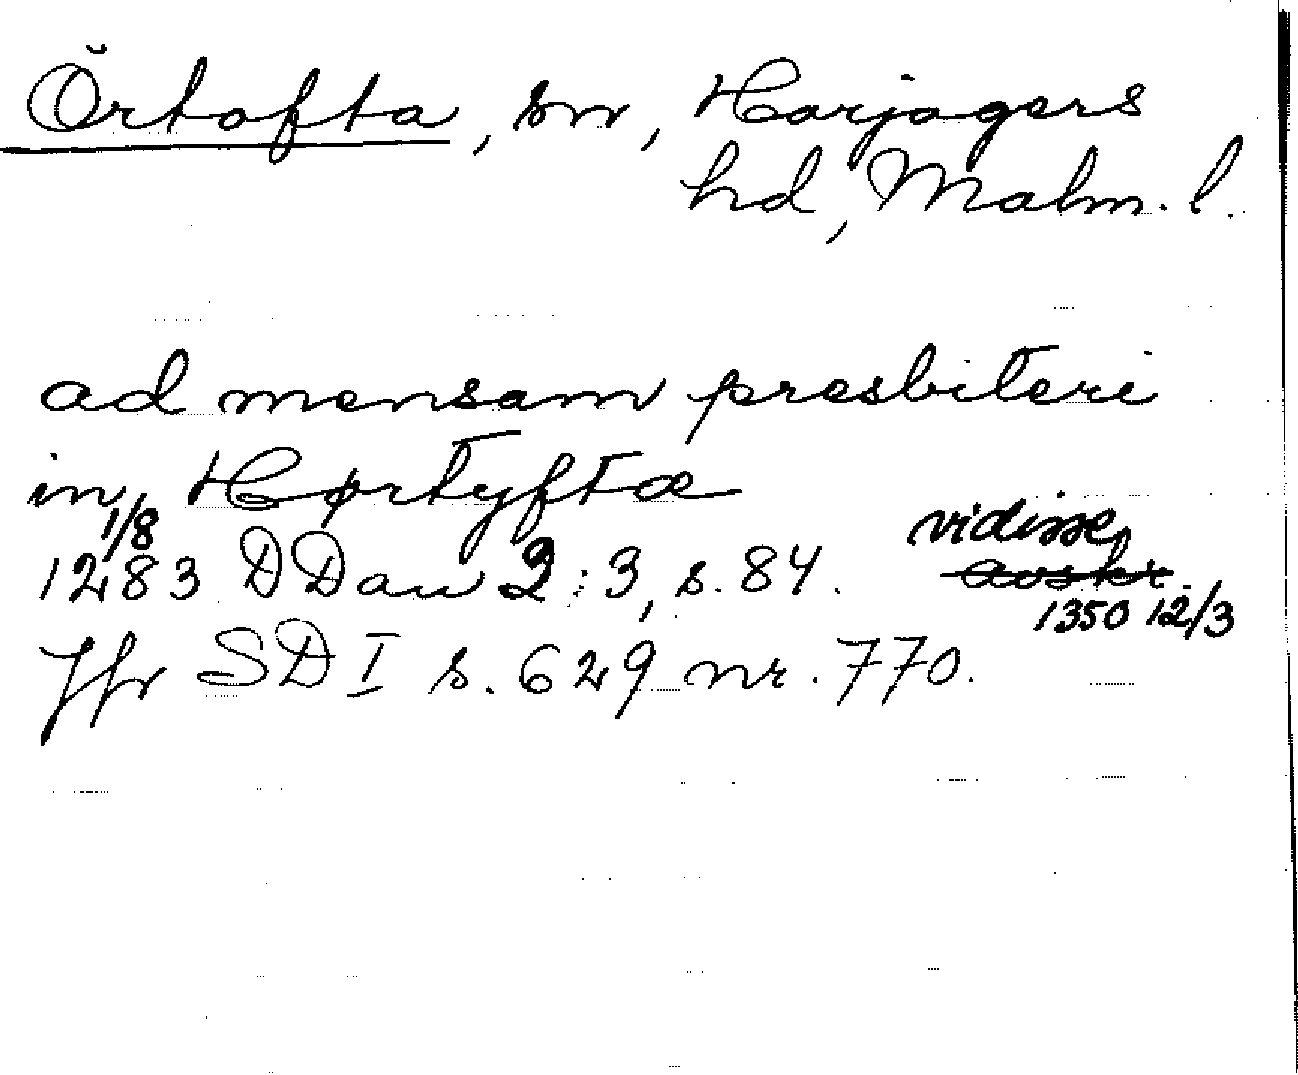 Örtofta, sn, Harjagers
hd, Malm. l.
ad mensam presbiteri
in Hørtyftæ
1/8 vidisse
1283 DDan 2:3, s. 84. avskr.
1350 12/3
Jfr SD I s. 629 nr. 770.